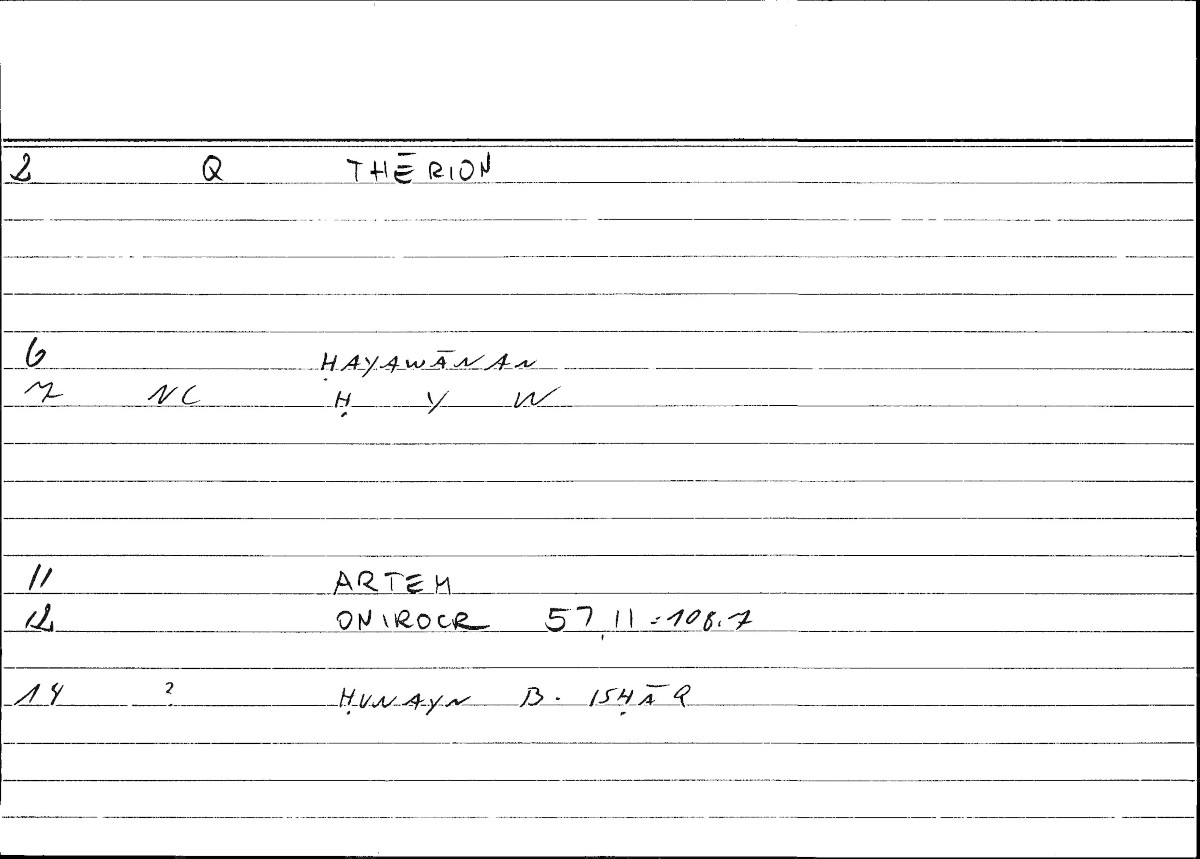 2 Q THĒRION
6 ḤAYAWĀNAN
7 NC Ḥ Y W
11 ARTEM
12 ONIROCR 57,11 = 108.7
14 ? ḤUNAYN B. ISḤĀQ